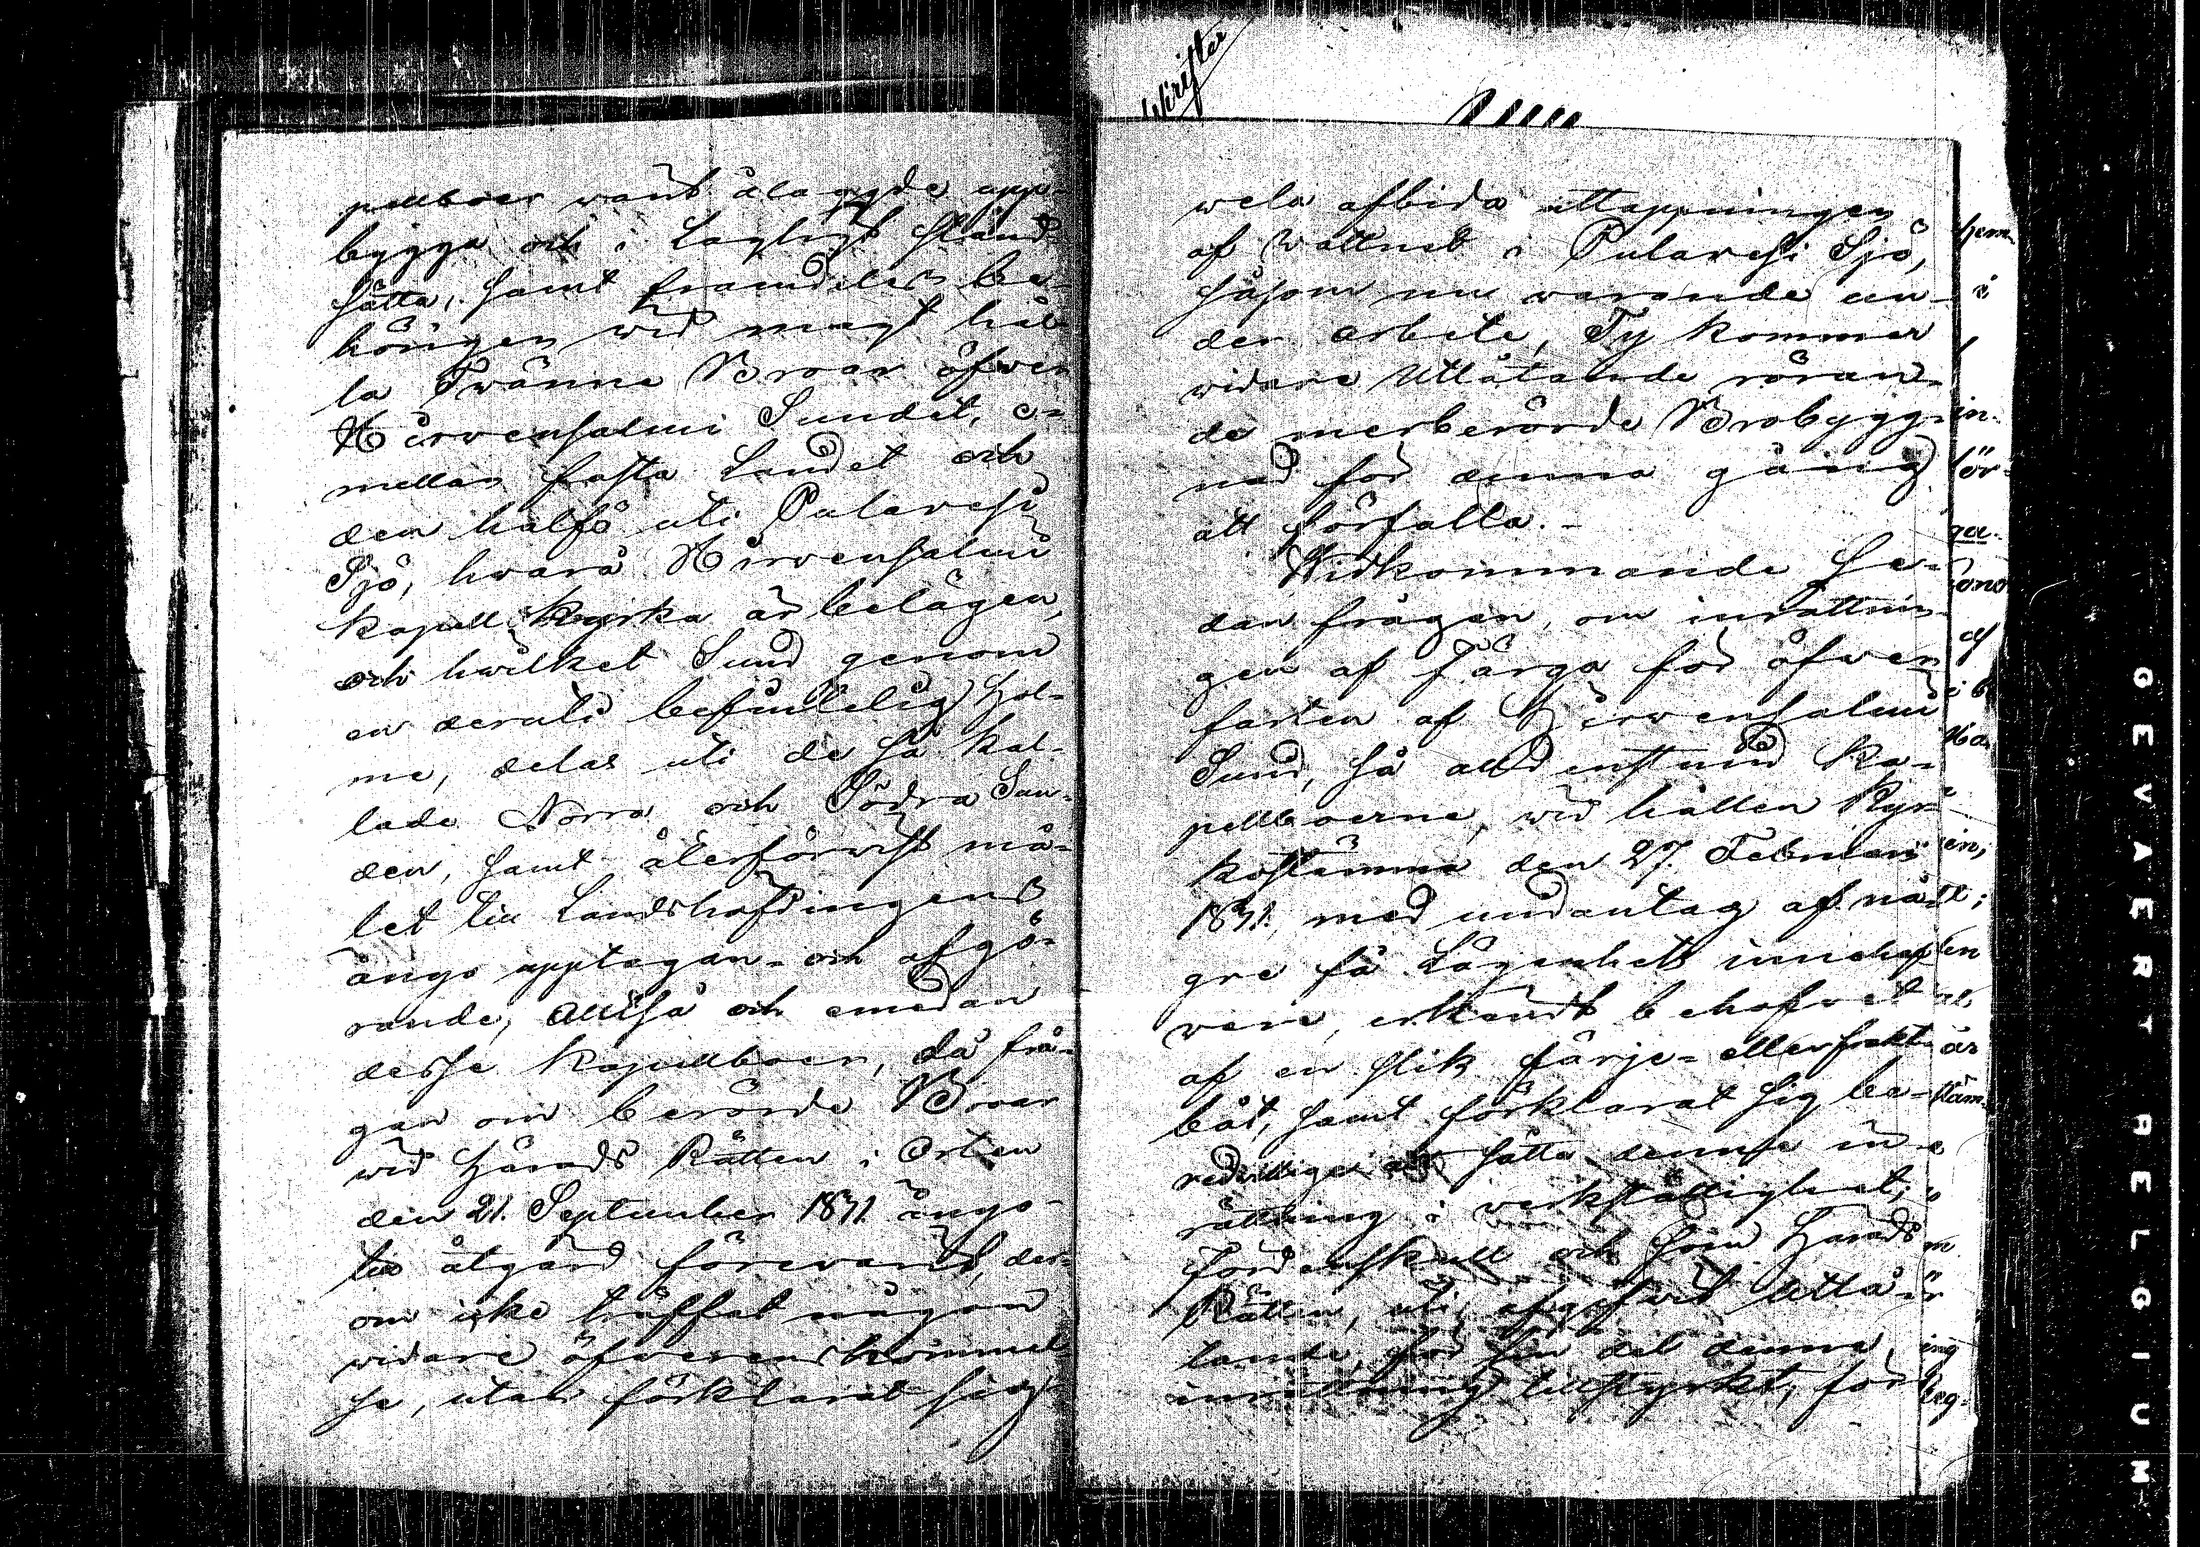 pellboer warit ålagde upp-
bygga och i lagligt stånd
sätta, samt framdeles be-
hörigen wid magt hål-
la Twänne Broar öfwer
Hirvensalmi Sundet, e-
mellan fasta Landet och
den halfö uti Pulavesi
Sjö, hvarå Hirvensalmi
kapell kyrka är belägen,
och hwilket Sund genom
en deruti befintelig Hol-
me, delas uti de så kal-
lade Norra och Södra Sun-
den, samt återförwist må-
let till Landshöfdingens
ånyo upptagan- och afgö-
rande, Alltså och emedan
desse Kapellboer, då frå-
gan om berörde Broar
wid Härads Rätten i Orten
den 21. September 1831. ånyo
till åtgärd förewarit, der-
om icke träffat någon
widare öfwerenskommel-
se, utan förklarat sig
wela afbida uttappningen
af Wattnet i Pulavesi Sjö,
såsom nu warande un-
der arbete, Ty kommer
widare Utlåtande röran-
de merberörde Brobygg-
nad för denna gång
att förfalla.-
Widkommande se-
dan frågan, om inrättnin-
gen af Färga för öfwer
farten af Hirvensalmi
Sund, så alldenstund Ka-
pellboerne, wid hållen Kyr-
kostämma den 27. Februari
1831, med undantag af nå-
gre få Lägenhets innehaf-
vare, erkändt behofvet
af en slik färje- eller frakt-
båt, samt förklarat sig be-
redwillige att sätta denne in-
rättning i verkställighet;
Fördenskull och som Härads
Rätten, uti afgifvit Utlå-
tande, för sin del denne
inrättning tillstyrkt, för
hem-
i
in-
för-
ga-
af
en
är
ing
GEVAERT BELGIUM